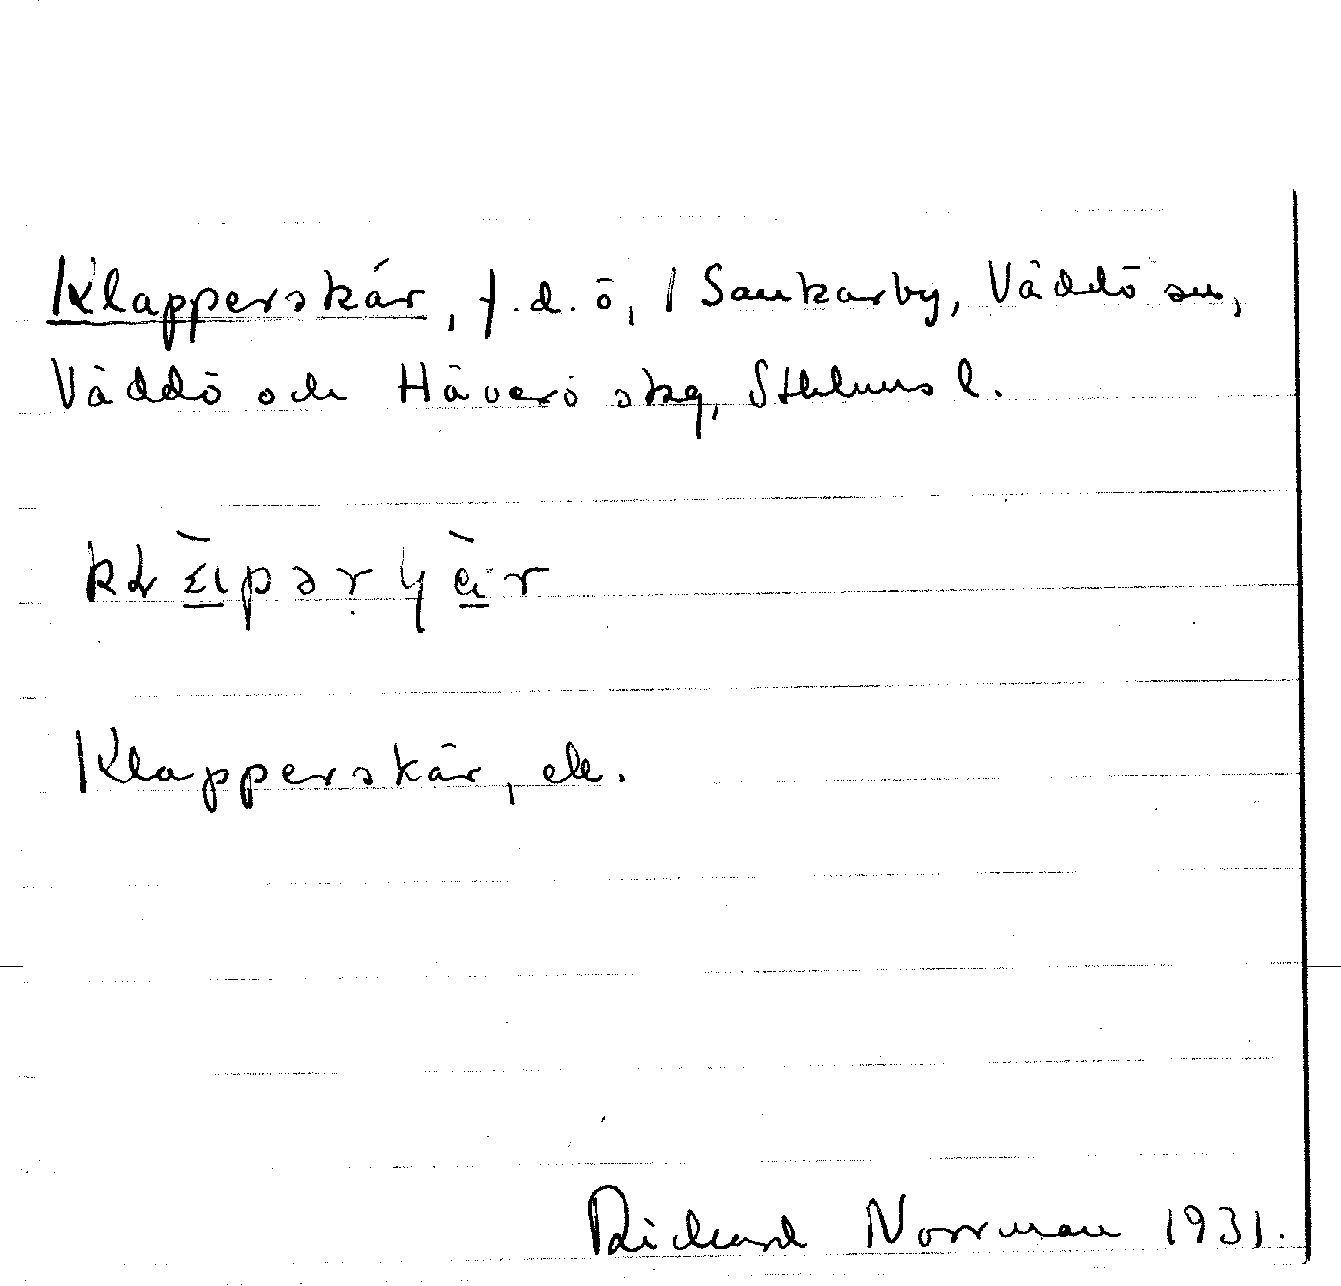 Klapperskär, f.d. ö, i Sankarby, Väddö sn,
Väddö och Häverö skg, Sthlms l.
Klapperskär, ek.
Rickard Norrman 1931.